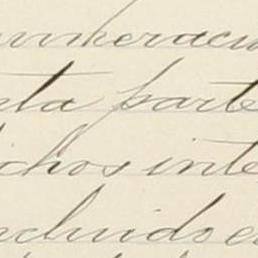 numeracio
nta parte
ichos inte
ncluido e